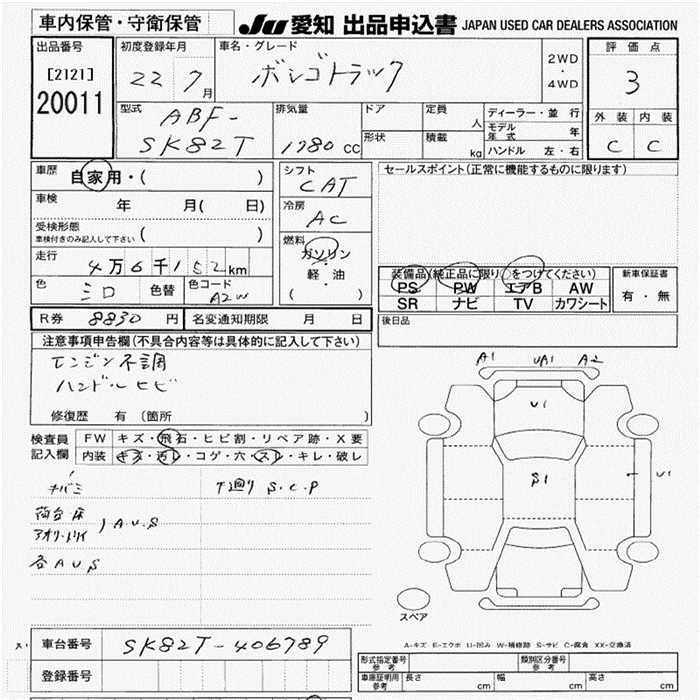 車内保管・守衛保管 JU 愛知 出品申込書 JAPAN USED CAR DEALERS ASSOCIATION
出品番号 初度登録年月 車名・グレード 評価点
[2121] 22 7月 ボンゴトラック 2WD・4WD 3
20011
型式 ABF- 排気量 ドア 定員 人 ディーラー・並行 外装 内装
SK82T 1780 cc 形状 積載 kg モデル年式 年 C C
ハンドル 左・右
車歴 自家用・( ) シフト CAT セールスポイント(正常に機能するものに限ります)
車検 年 月( 日) 冷房 AC
受検形態 ( )
車検付きのみ記入して下さい
燃料 ガソリン・軽油 ( )
走行 4万6千152km
装備品(純正品に限り○をつけてください) 新車保証書
PS PW エアB AW 有・無
SR ナビ TV カワシート
色 シロ 色替 色コード A2W
R券 8830円 名変通知期限 月 日 後日品
注意事項申告欄(不具合内容等は具体的に記入して下さい)
エンジン不調
ハンドルヒビ
修復歴 有 (箇所 )
A1 UA1 A2
U1
S1 U1
検査員記入欄 FW キズ・飛石・ヒビ割・リペア跡・X要
内装 キズ・汚レ・コゲ・穴・スレ・キレ・破レ
キバミ 下廻り S.C.P
荷台床
アオリ・トリイ ) A.U.S
各AUS
スペア
A-キズ E-エクボ U-凹み W-補修跡 S-サビ C-腐食 XX-交換済
車台番号 SK82T-406789
登録番号
型式指定番号 参考 類別区分番号 参考
車庫証明用 参考 長さ cm 幅 cm 高さ cm